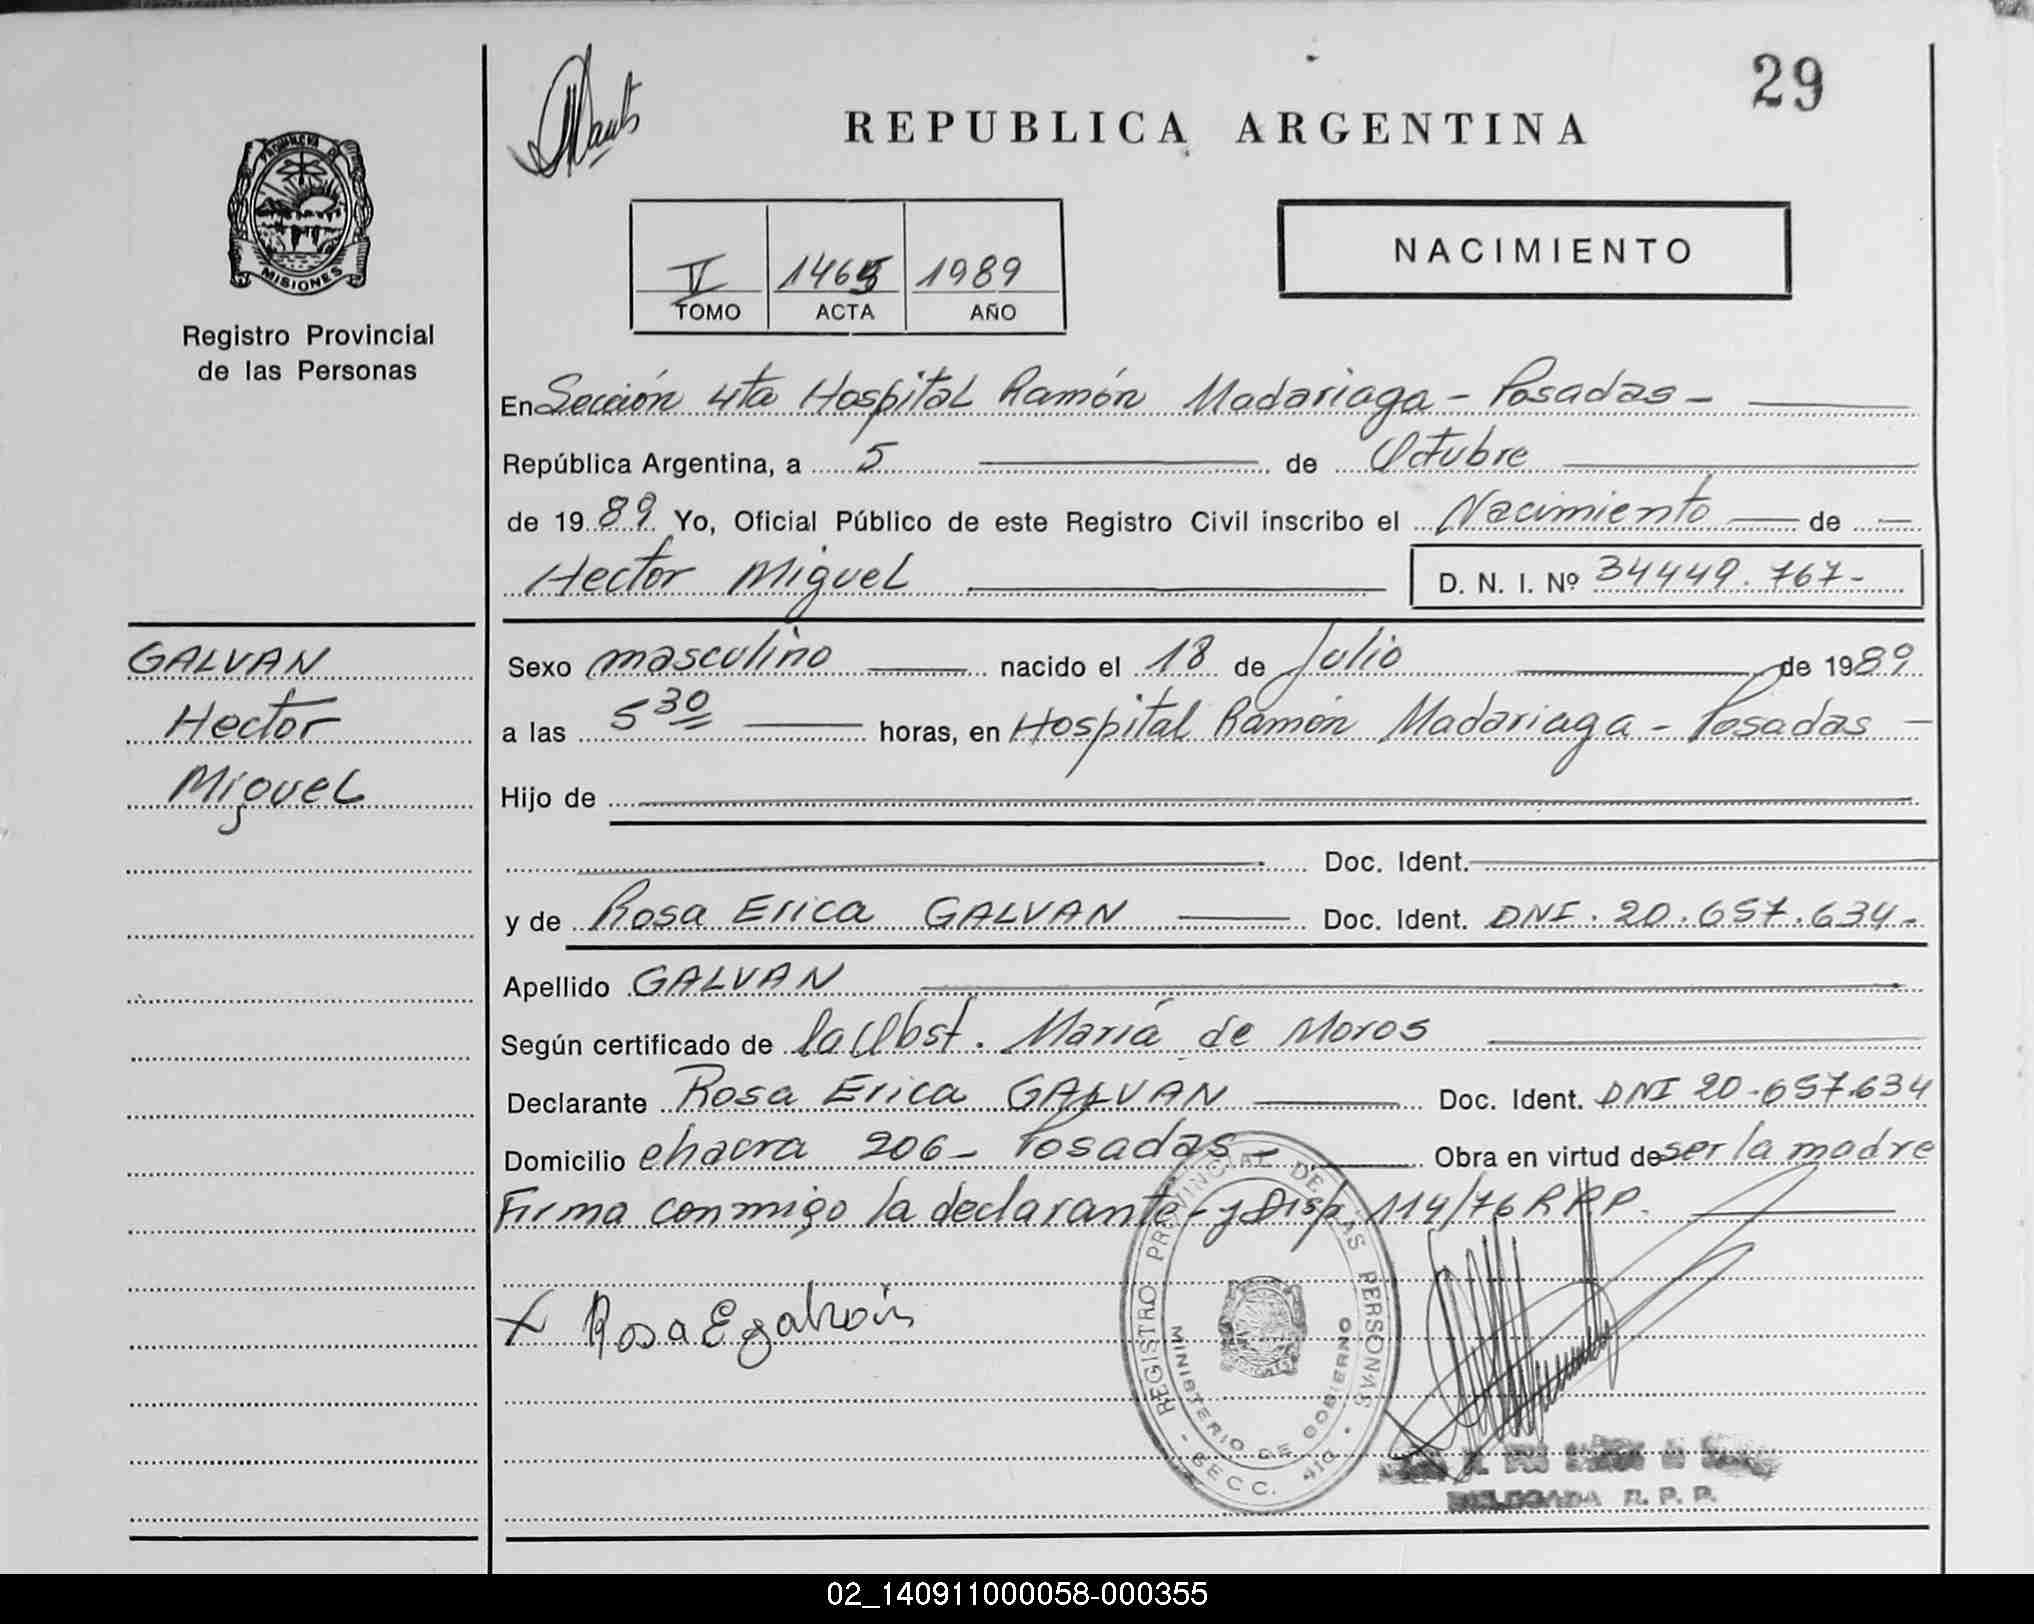 29
REPUBLICA ARGENTINA
PROVINCIA DE
MISIONES
Registro Provincial
de las Personas
V 1989
TOMO ACTA AÑO
NACIMIENTO
En Sección 4ta Hospital Ramón Madariaga - Posadas -
República Argentina, a 5 de Octubre
de 1989 Yo, Oficial Público de este Registro Civil inscribo el Nacimiento de
Hector Miguel D. N. I. Nº 34449.767-
GALVAN
Hector
Miguel
Sexo masculino nacido el 18 de Julio de 1989
a las 5 30 horas, en Hospital Ramón Madariaga - Posadas
Hijo de
Doc. Ident.
y de Rosa Erica GALVAN Doc. Ident. DNI. 20.657.634-
Apellido GALVAN
Según certificado de la Obst. María de Moros
Declarante Rosa Erica GALVAN Doc. Ident. DNI 20.657.634
Domicilio chacra 206 - Posadas - Obra en virtud de ser la madre
Firma conmigo la declarante - y Disp 114/76 RPP.
X Rosa E galván
REGISTRO PROVINCIAL DE LAS PERSONAS
MINISTERIO DE GOBIERNO
SECC. 4ta
DELEGADA R. P. P.
02_140911000058-000355